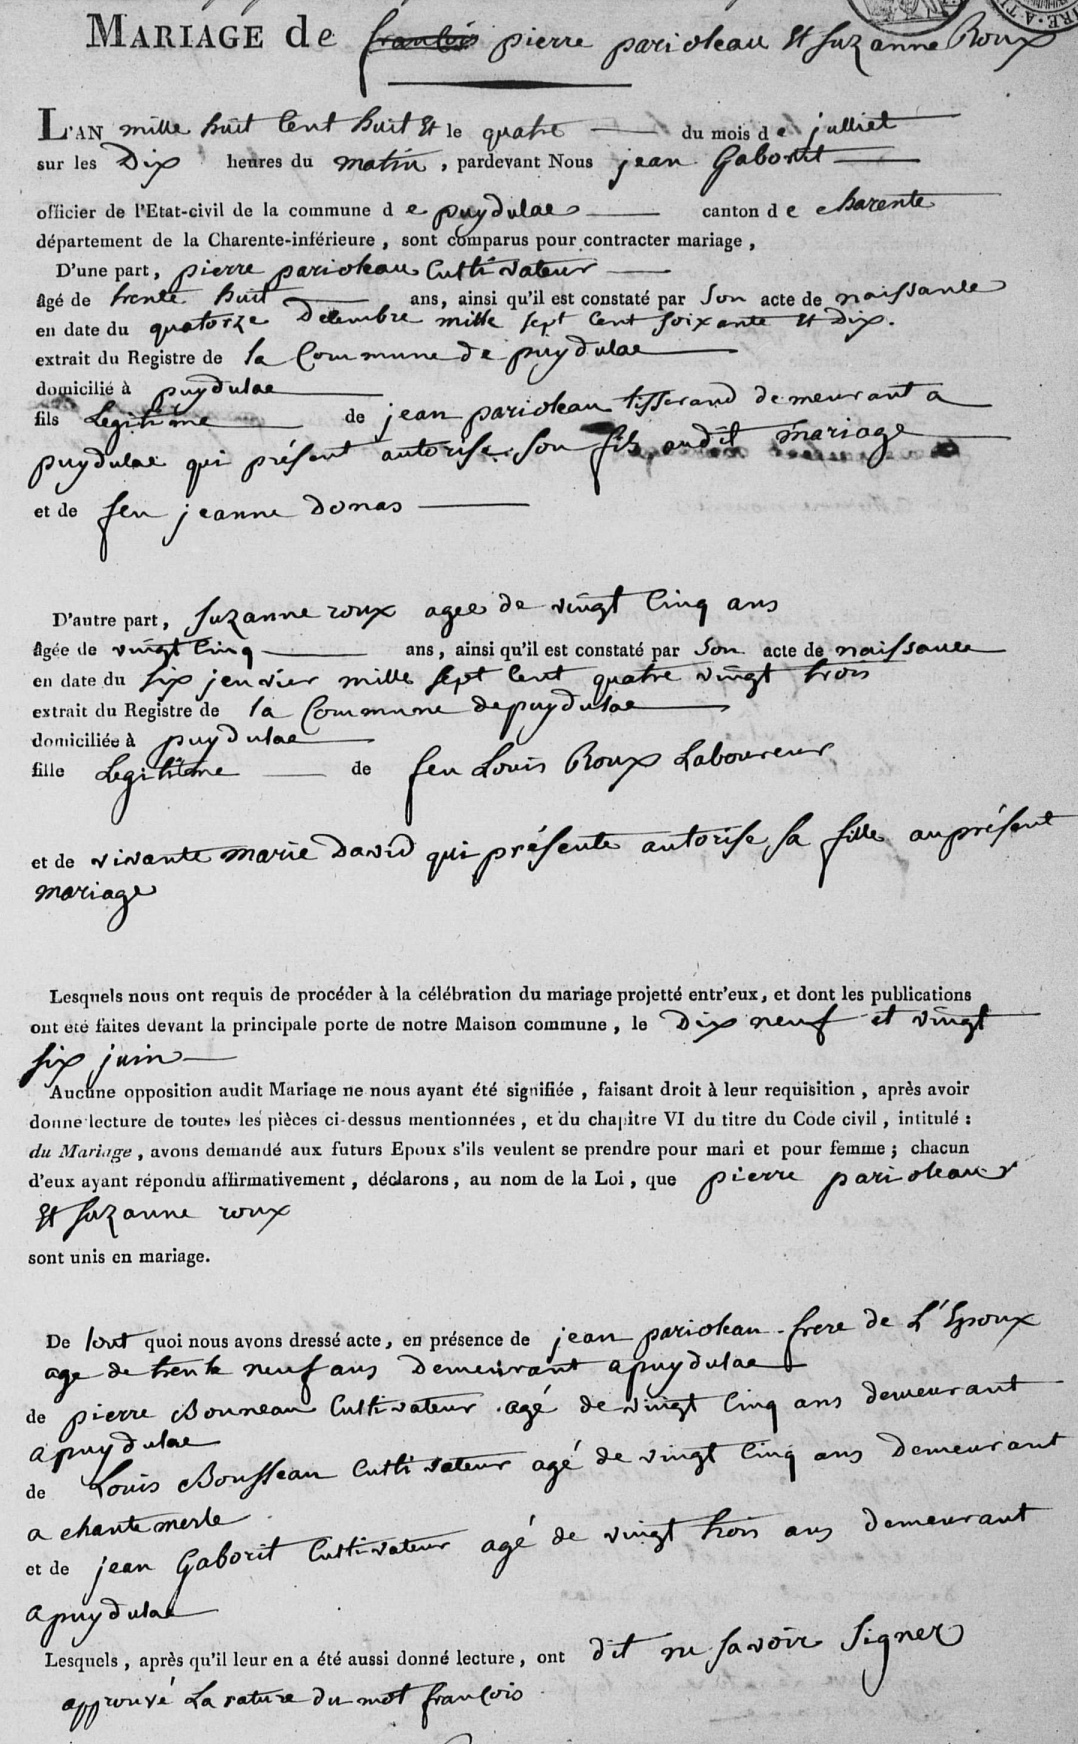 MARIAGE de ~~françois~~ pierre parioleau et suzanne Roux
L'AN mille huit Cent huit Et le quatre du mois de julliet
sur les Dix heures du matin, pardevant Nous jean Gaborit
officier de l'Etat-civil de la commune de puydulac canton de charente
département de la Charente-inférieure, sont comparus pour contracter mariage,
D'une part, pierre parioleau Cultivateur
âgé de trente huit ans, ainsi qu'il est constaté par Son acte de naissance
en date du quatorze Decembre mille sept Cent soixante Et Dix.
extrait du Registre de la Commune de puydulac
domicilié à puydulac
fils Legitime de jean parioleau tisserand demeurant a
puydulac qui présent autorise son fils audit mariage
et de feu jeanne Donas
D'autre part, suzanne roux agee de vingt Cinq ans
âgée de vingt Cinq ans, ainsi qu'il est constaté par Son acte de naissance
en date du six jenvier mille sept Cent quatre vingt trois
extrait du Registre de la Commune de puydulac
domiciliée à puydulac
fille Legitime de feu Louis Roux Laboureur
et de vivante marie David qui présente autorise sa fille au présent
mariage
Lesquels nous ont requis de procéder à la célébration du mariage projetté entr'eux, et dont les publications
ont été faites devant la principale porte de notre Maison commune, le Dix neuf et vingt
six juin
Aucune opposition audit Mariage ne nous ayant été signifiée, faisant droit à leur requisition, après avoir
donne lecture de toutes les pièces ci-dessus mentionnées, et du chapitre VI du titre du Code civil, intitulé :
du Mariage, avons demandé aux futurs Epoux s'ils veulent se prendre pour mari et pour femme ; chacun
d'eux ayant répondu affirmativement, déclarons, au nom de la Loi, que pierre parioleau
Et suzanne roux
sont unis en mariage.
De tout quoi nous avons dressé acte, en présence de jean parioleau frere de L'Epoux
age de trente neuf ans Demeurant a puydulac
de pierre Bonneau Cultivateur agé de vingt Cinq ans demeurant
a puydulac
de Louis Bousseau Cultivateur agé de vingt Cinq ans Demeurant
a chantemerle
et de jean Gaborit Cultivateur agé de vingt trois ans demeurant
a puydulac
Lesquels, après qu'il leur en a été aussi donné lecture, ont dit ne savoir signer
approuvé La rature du mot françois